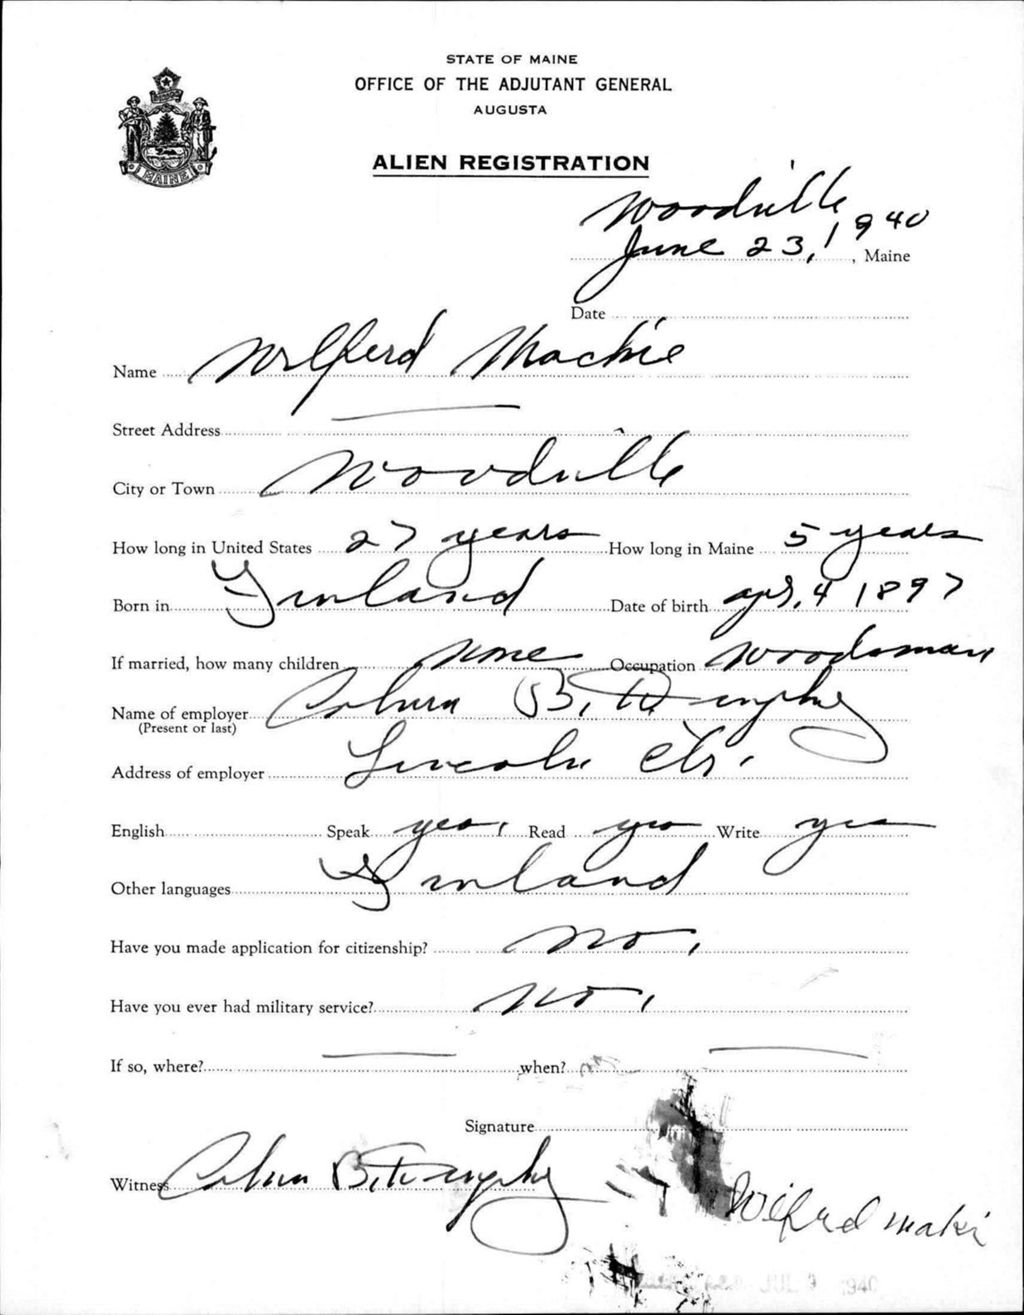 STATE OF MAINE
OFFICE OF THE ADJUTANT GENERAL
AUGUSTA
ALIEN REGISTRATION
MAINE
Woodville
June 23, 1940, Maine
Date
Name Wilferd Mackie
Street Address —
City or Town Woodville
How long in United States 27 years How long in Maine 5 years
Born in Finland Date of birth apr. 4 1897
If married, how many children none Occupation Woodsman
Name of employer B.
(Present or last)
Address of employer Lincoln Ctr.
English Speak yes, Read yes Write yes
Other languages Finland
Have you made application for citizenship? no,
Have you ever had military service? no,
If so, where? — when? —
Signature
Witness B.
Wilfred maki
JUL 1940